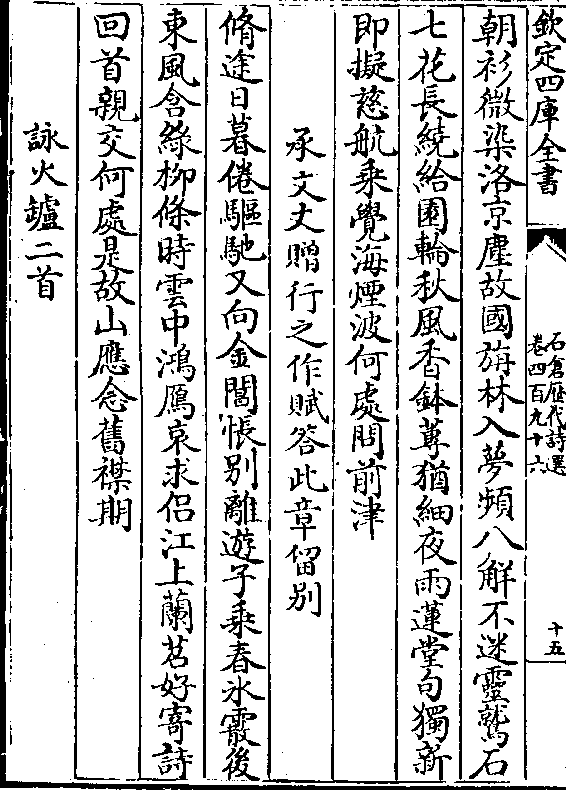 欽定四庫全書
石倉歷代詩選
卷四百九十六
十五
朝衫微染洛京塵故國旃林入夢頻八解不迷靈鷲石
七花長繞給園輪秋風香鉢蓴猶細夜雨蓮堂句獨新
即擬慈航乗覺海煙波何處問前津
承文丈贈行之作賦答此章留別
脩途日暮倦驅馳又向金閶悵别離遊子乗春氷霰後
東風含緑柳條時雲中鴻鴈哀求侣江上蘭苕好寄詩
回首親交何處是故山應念舊襟期
詠火鑪二首